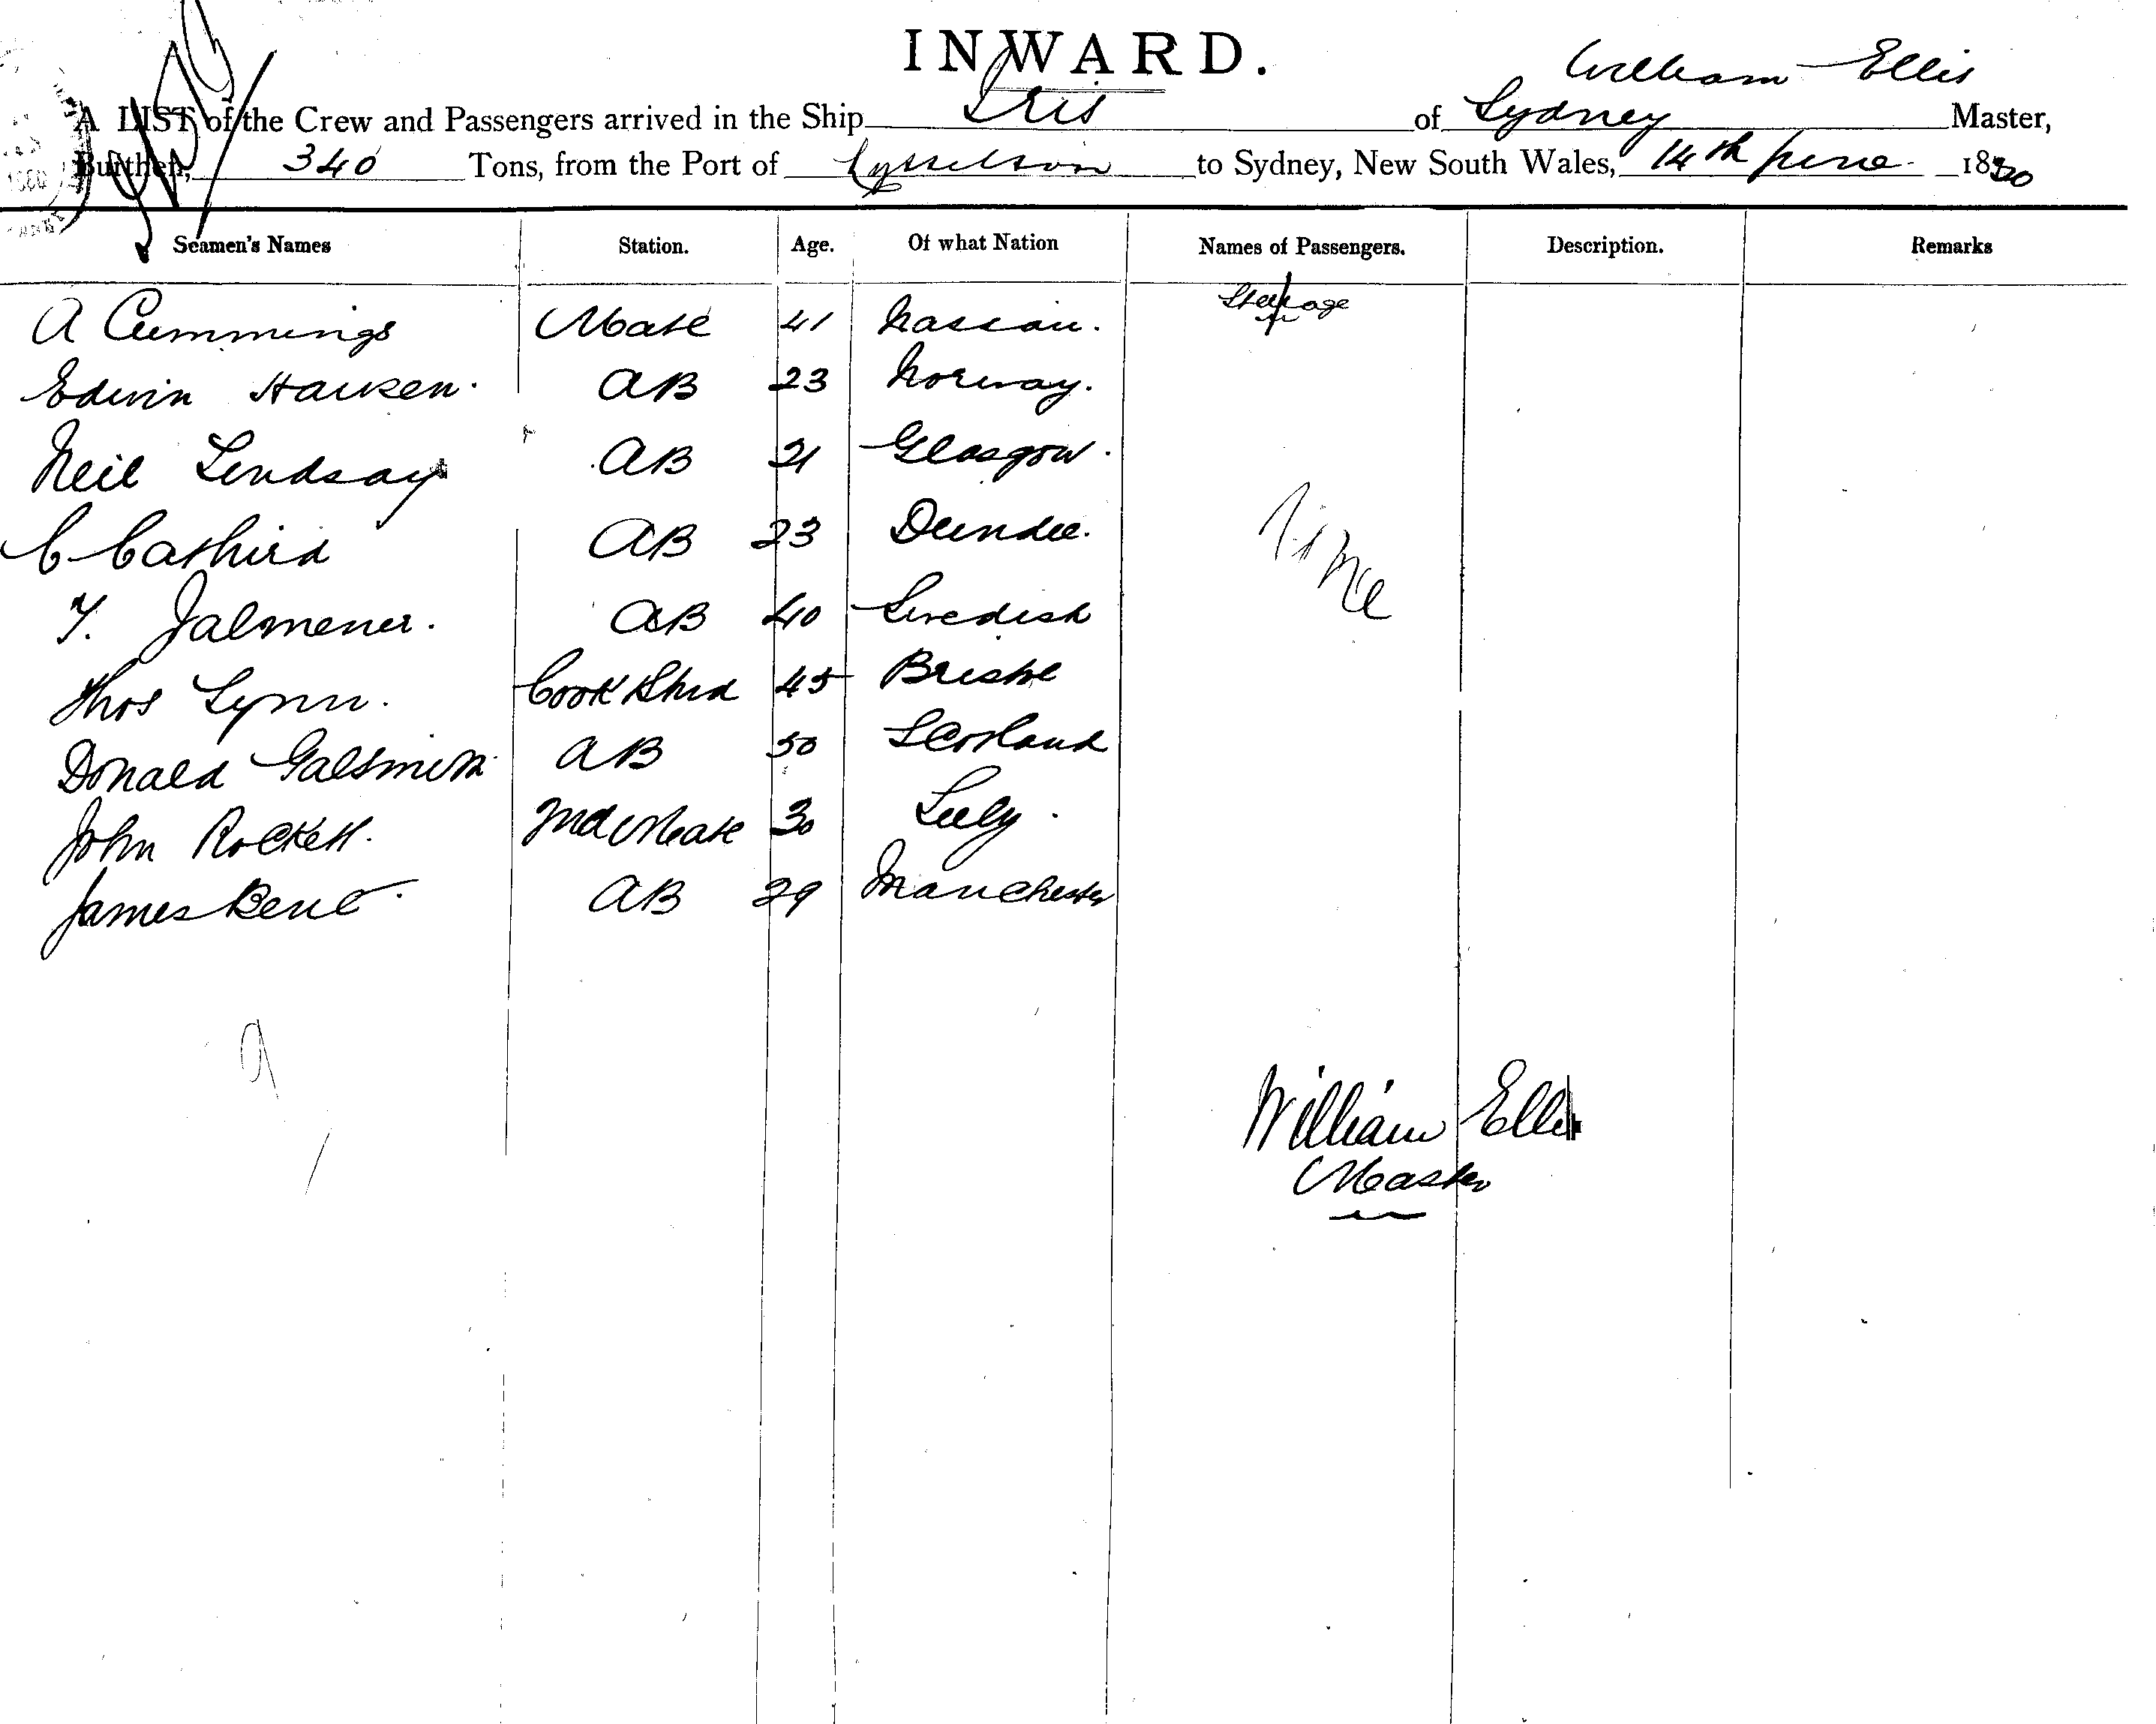 INWARD.
William Ellis
A LIST of the Crew and Passengers arrived in the Ship Iris of Sydney Master,
Burthen, 340 Tons, from the Port of to Sydney, New South Wales, 14th June 18
Seamen's Names Station. Age. Of what Nation Names of Passengers. Description. Remarks
Steerage
A Cummings Mate 41 Nassau.
Edwin Hansen. AB 23 Norway.
Neil Lindsay AB 21 Glasgow.
C AB 23 Dundee.
AB 40 Swedish
Thos Lynn. Cook & Stwd 45 Bristol
Donald AB 50 Scotland
John Rockett. 2nd Mate 30
James AB 29 Manchester
9
William Ellis
Master